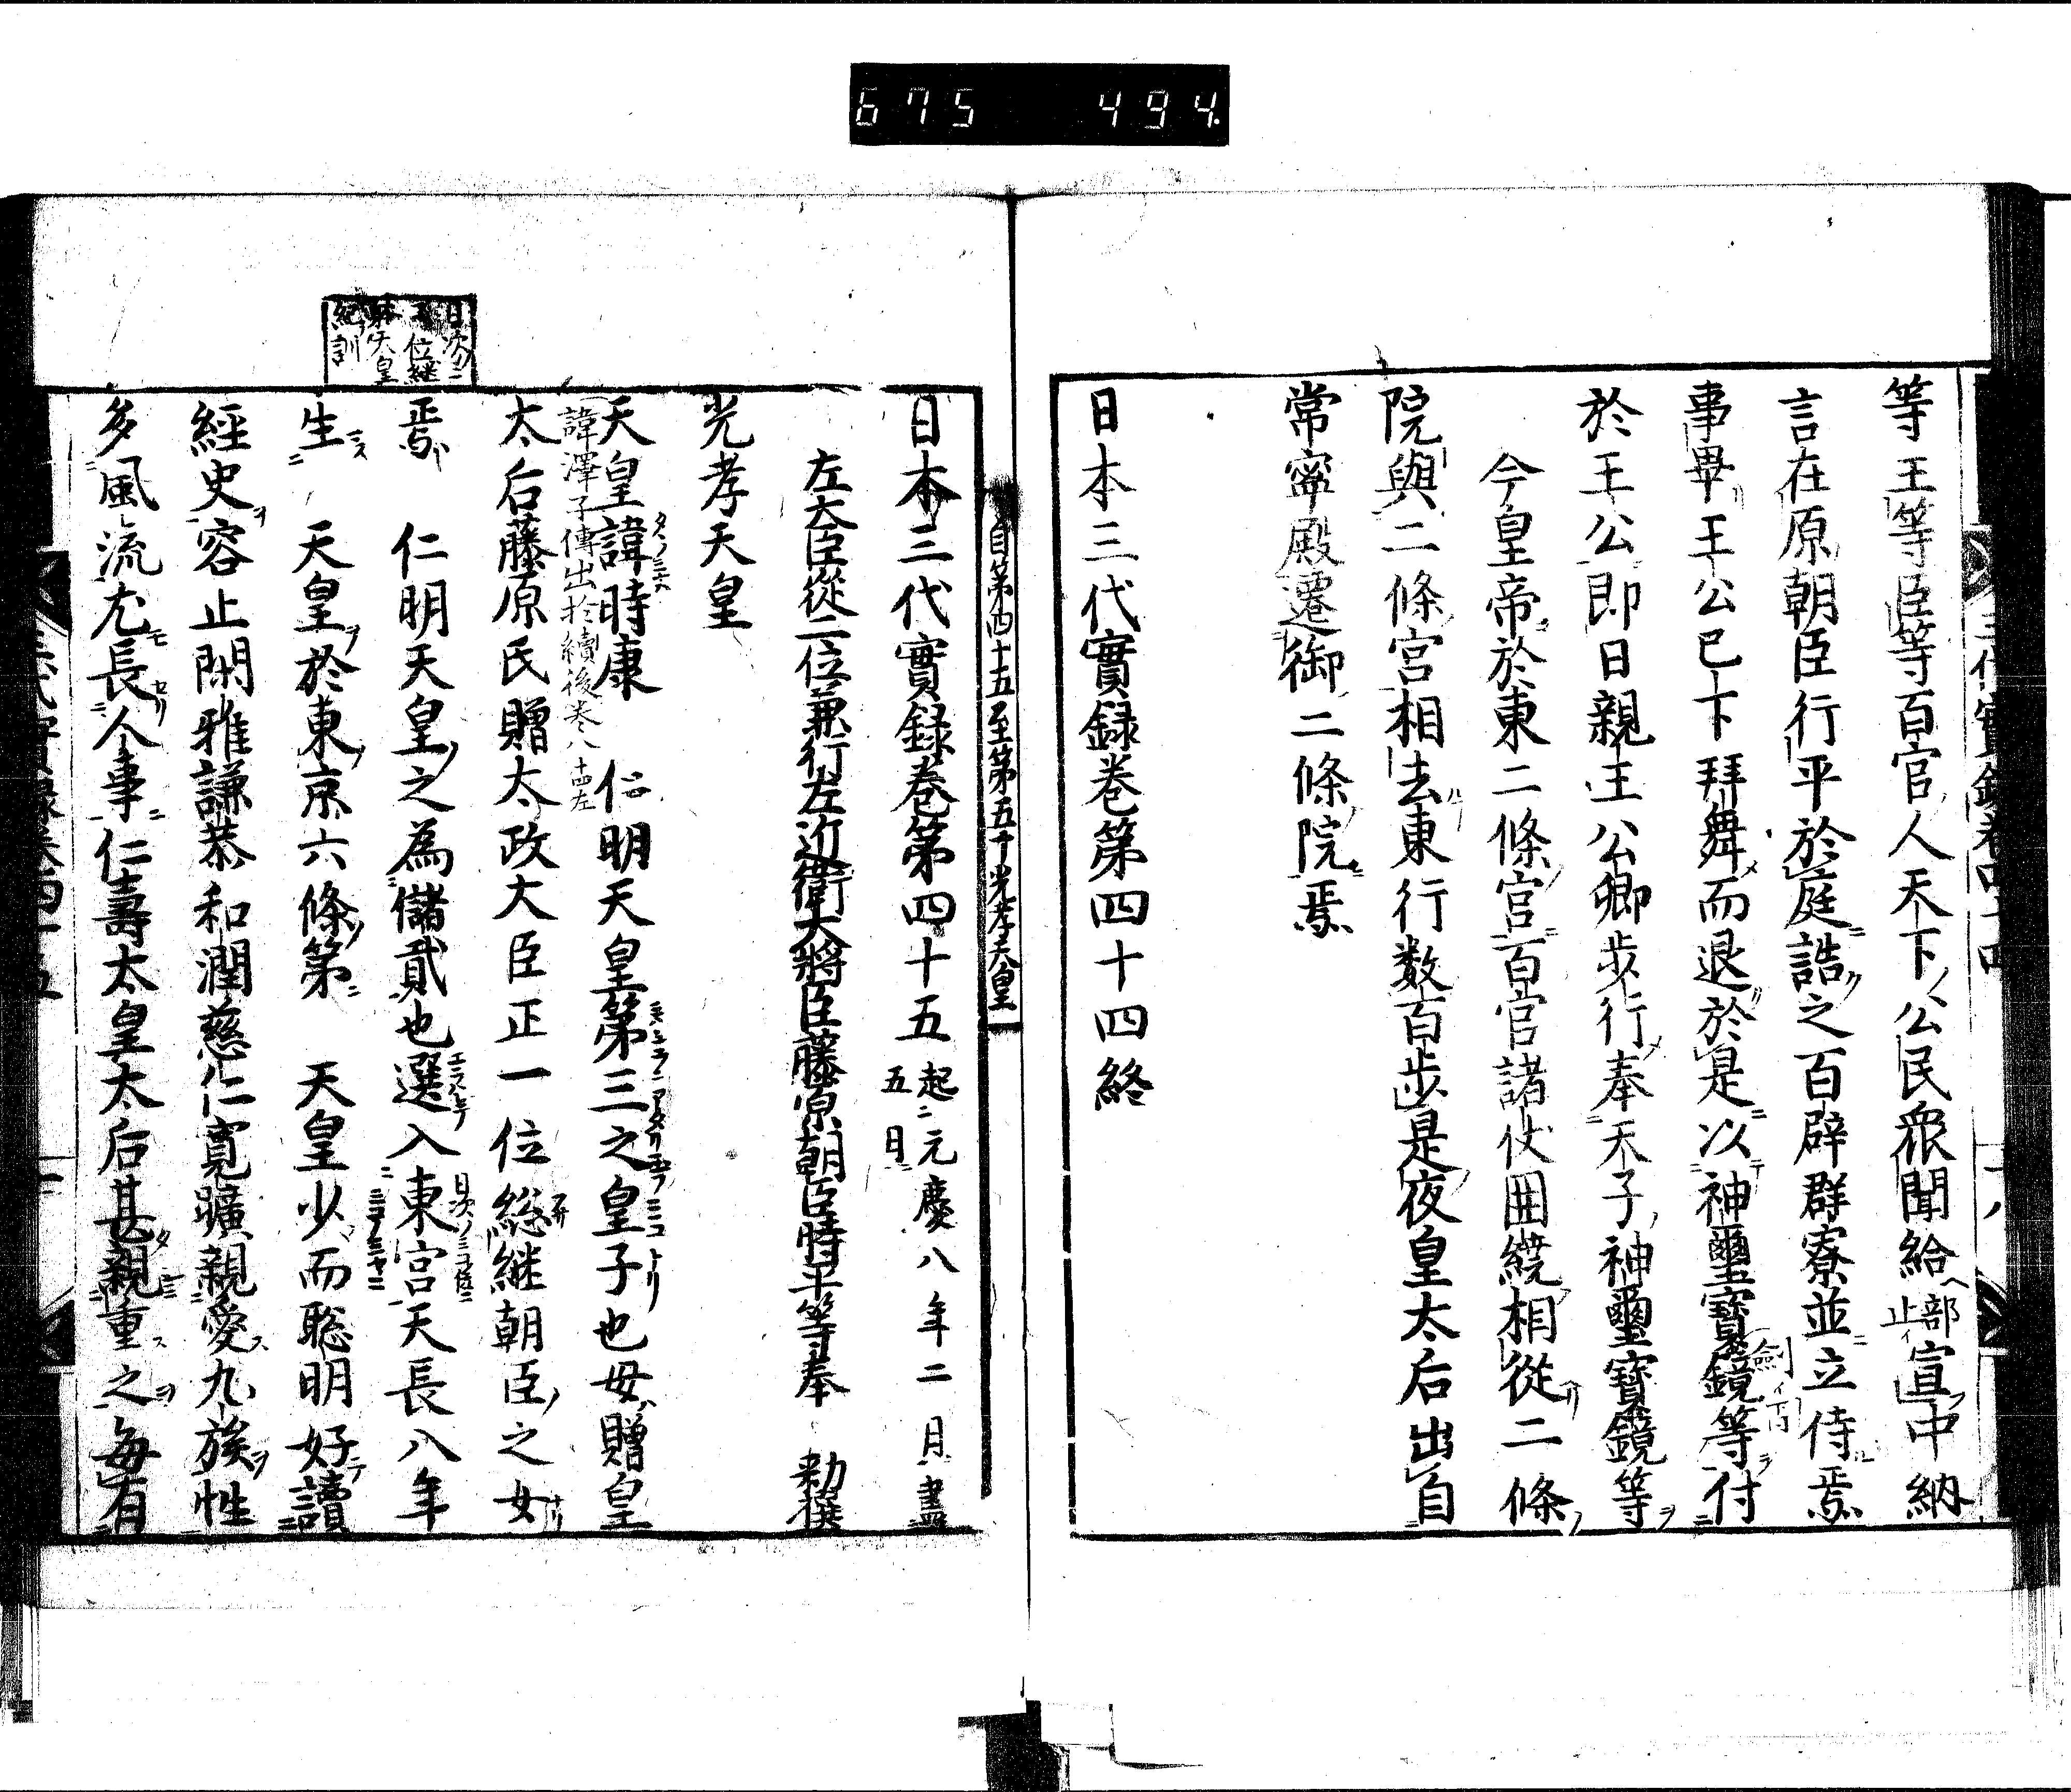 675 494
等王等臣等百官人天下公民衆聞給止部宣中納
言在原朝臣行平於庭誥之百辟群寮並立侍焉
事畢王公已下拜舞而退於是以神璽寶鏡等付
劍イ
於王公即日親王公卿步行奉天子神璽寶鏡等
今皇帝於東二條宮百官諸仗囲繞相從二條
院與二條宮相去東行数百步是夜皇太后出自
常寧殿遷御二條院焉
日本三代實録巻第四十四終
自第四十五至第五十光孝天皇
日本三代實録巻第四十五起元慶八年二月盡五日
左大臣從二位兼行左近衛大將臣藤原朝臣時平等奉 勅撰
光孝天皇
天皇諱時康 仁明天皇第三之皇子也母贈皇
諱澤子傳出於續後巻八十四左
太后藤原氏贈太政大臣正一位総継朝臣之女
焉 仁明天皇之為儲貳也選入東宮天長八年
生 天皇於東京六條第 天皇少而聡明好讀
經史容止閑雅謙恭和潤慈仁寛曠親愛九族性
多風流尤長人事仁壽太皇太后甚親重之毎有